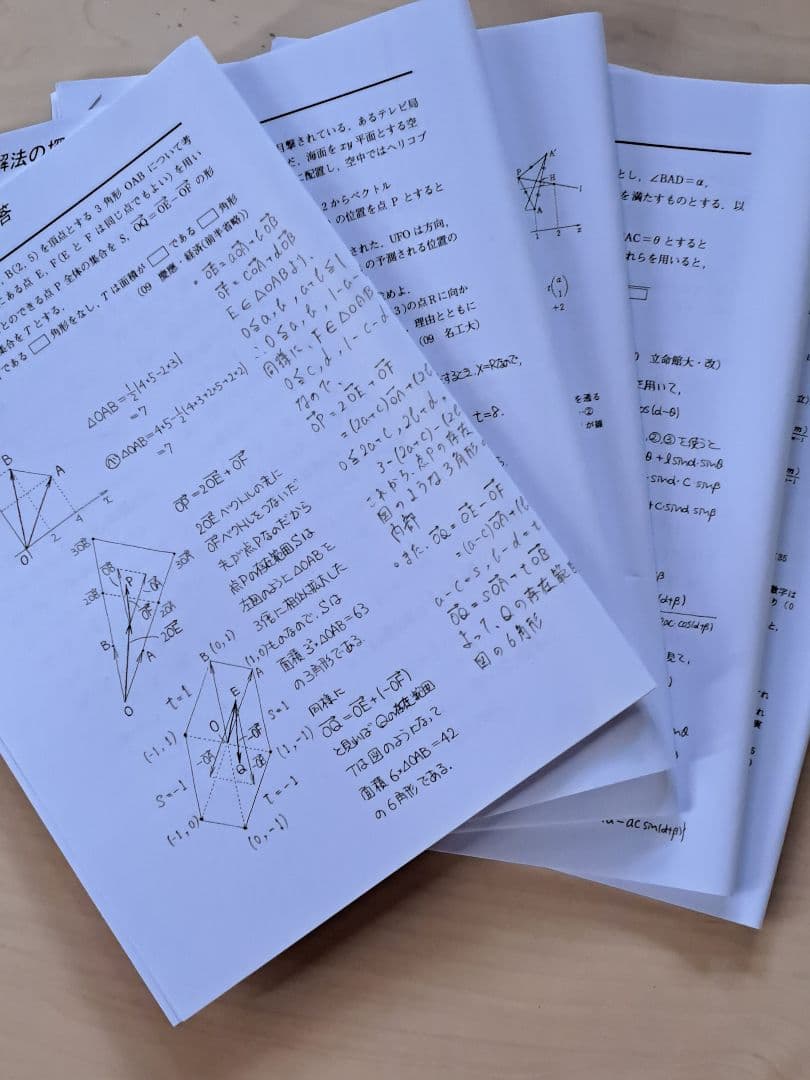 解法の
答
B(2, 5) を頂点とする 3 角形 OAB について考
にある点 E, F(E と F は同じ点でもよい) を用い
とのできる点 P 全体の集合を S, OQ=OE−OF の形
集合を T とする.
である □ 角形をなし, T は面積が □ である □ 角形
(09 慶應・経済(前半省略))
△OAB=½|4×5−2×3|
=7
△OAB=4×5−½(4×3+2×5+2×2)
=7
B
A
O
2
4
x
OP=2OE+OF
2OEベクトルの先に
OFベクトルをつないだ
先が点Pなのだから
点Pの存在範囲Sは
左図のように△OABを
3倍に相似拡大した
ものなので、Sは
面積 3²×△OAB=63
の3角形である.
3OB
3OA
2OB
2OA
P
OF
2OE
B
A
O
同様に
OQ=OE+(−OF)
と見れば Qの存在範囲
Tは図のようになって
面積 6×△OAB=42
の6角形である.
B(0,1)
(1,0)
A
E
O
Q
−OF
t=1
s=1
(-1,1)
(1,-1)
s=-1
t=-1
(-1,0)
(0,-1)
・OE=aOA+bOB
OF=cOA+dOB
E∈△OABより,
0≦a,b, a+b≦1
∴0≦a,b, 1−a−
同様に, F∈△OAB
0≦c,d, 1−c−d
なので,
OP=2OE+OF
=(2a+c)OA+(2b
0≦2a+c, 2b+d,
3−(2a+c)−(2b
これから, 点Pの存在
図のような3角形
内部
・また, OQ=OE−OF
=(a−c)OA+(b
a−c=s, b−d=t
OQ=sOA+tOB
よって, Qの存在範
図の6角形
目撃されている. あるテレビ局
だ. 海面を xy 平面とする空
に配置し, 空中ではヘリコプ
2からベクトル
の位置を点 P とすると
された. UFO は方向,
の予測される位置の
めよ.
3)の点 R に向か
理由とともに
(09 名工大)
するとき, X=Rなので,
t=8.
A'
P
H
l
A
1
2
x
+2
を通る
②
が線
とし, ∠BAD=α,
を満たすものとする. 以
AC=θ とすると
れらを用いると,
立命館大・改)
を用いて,
cos(α−θ)
,②,③を使うと
θ+l sinα·sinθ
·sinα·C sinβ
+C·sinα sinβ
(α+β)
2ac·cos(α+β)
見て,
a−ac sin(α+β)}
立)
m)
35
数字は
り (0
と,
れ
れ
実